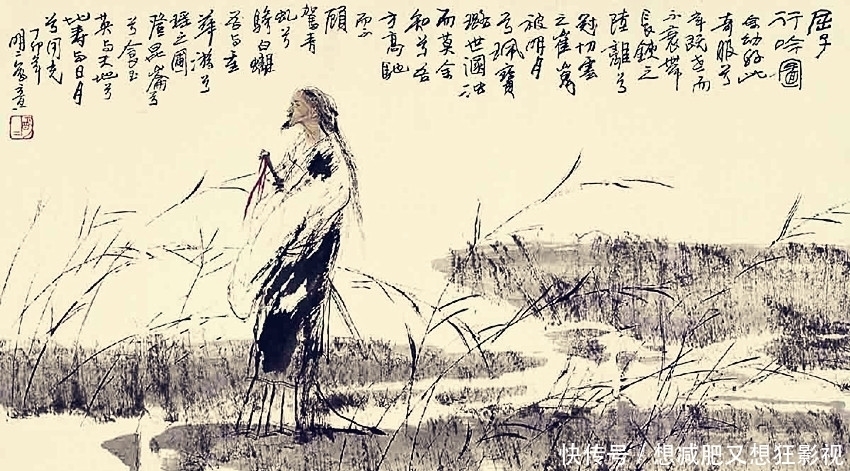 屈子
行吟圖
余幼好此
奇服兮
年既老而
不衰帶
長鋏之
陸離兮
冠切雲
之崔嵬
被明月
兮珮寶
璐世溷浊
而莫余
知兮吾
方高馳
而不
顧
駕青
虬兮
驂白螭
吾与重
華游兮
瑶之圃
登崑崙
兮食玉
英与天地兮
比寿与日月
兮同光
丁卯年
快传号/想减肥又想狂影视